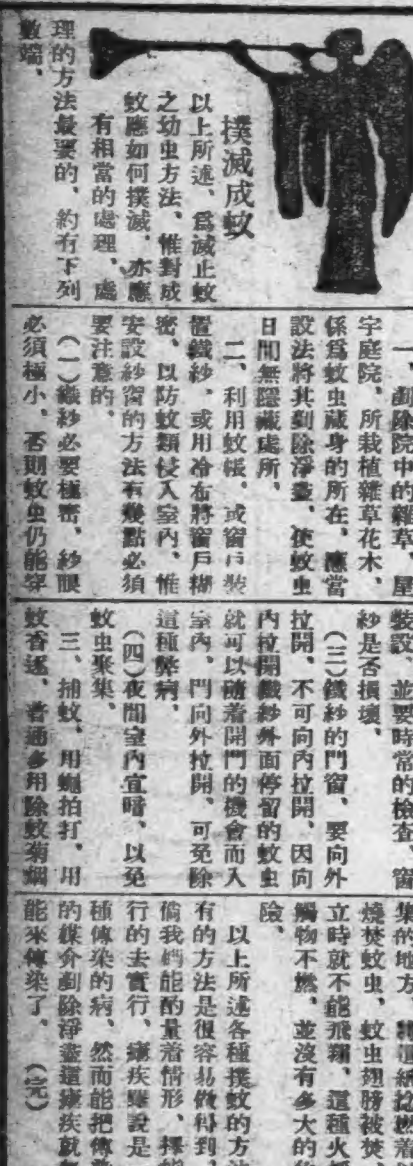 撲滅成蚊
以上所述、爲滅止蚊
之幼虫方法、惟對成
蚊應如何撲滅、亦應
有相當的處理、處
理的方法最要的、約有下列
數端、
一、剷除院中的雜草、屋
宇庭院、所栽植雜草花木、
係爲蚊虫藏身的所在、應當
設法將其剷除淨盡、使蚊虫
日間無隱藏處所、
二、利用蚊帳、或窗戶裝
置鐵紗、或用冷布將窗戶糊
密、以防蚊類侵入室內、惟
安設紗窗的方法有幾點必須
要注意的、
(一)鐵紗必要極密、紗眼
必須極小、否則蚊虫仍能穿
裝設、並要時常的檢查、窗
紗是否損壞、
(三)鐵紗的門窗、要向外
拉開、不可向內拉開、因向
內拉開鐵紗外面停留的蚊虫
就可以隨着開門的機會而入
室內、門向外拉開、可免除
這種弊病、
(四)夜間室內宜暗、以免
蚊虫聚集、
三、捕蚊、用蠅拍打、用
蚊香逐、普通多用除蚊菊烟
集的地方、紙捻燃着
燒焚蚊虫、蚊虫翅膀被焚、
立時就不能飛翔、這種火
觸物不燃、並沒有多大的
險、
以上所述各種撲蚊的方
有的方法是很容易做得到、
倘我們能酌量着情形、擇
行的去實行、瘧疾雖說是
種傳染的病、然而能把傳
的媒介剷除淨盡這瘧疾就
能來傳染了、 (完)